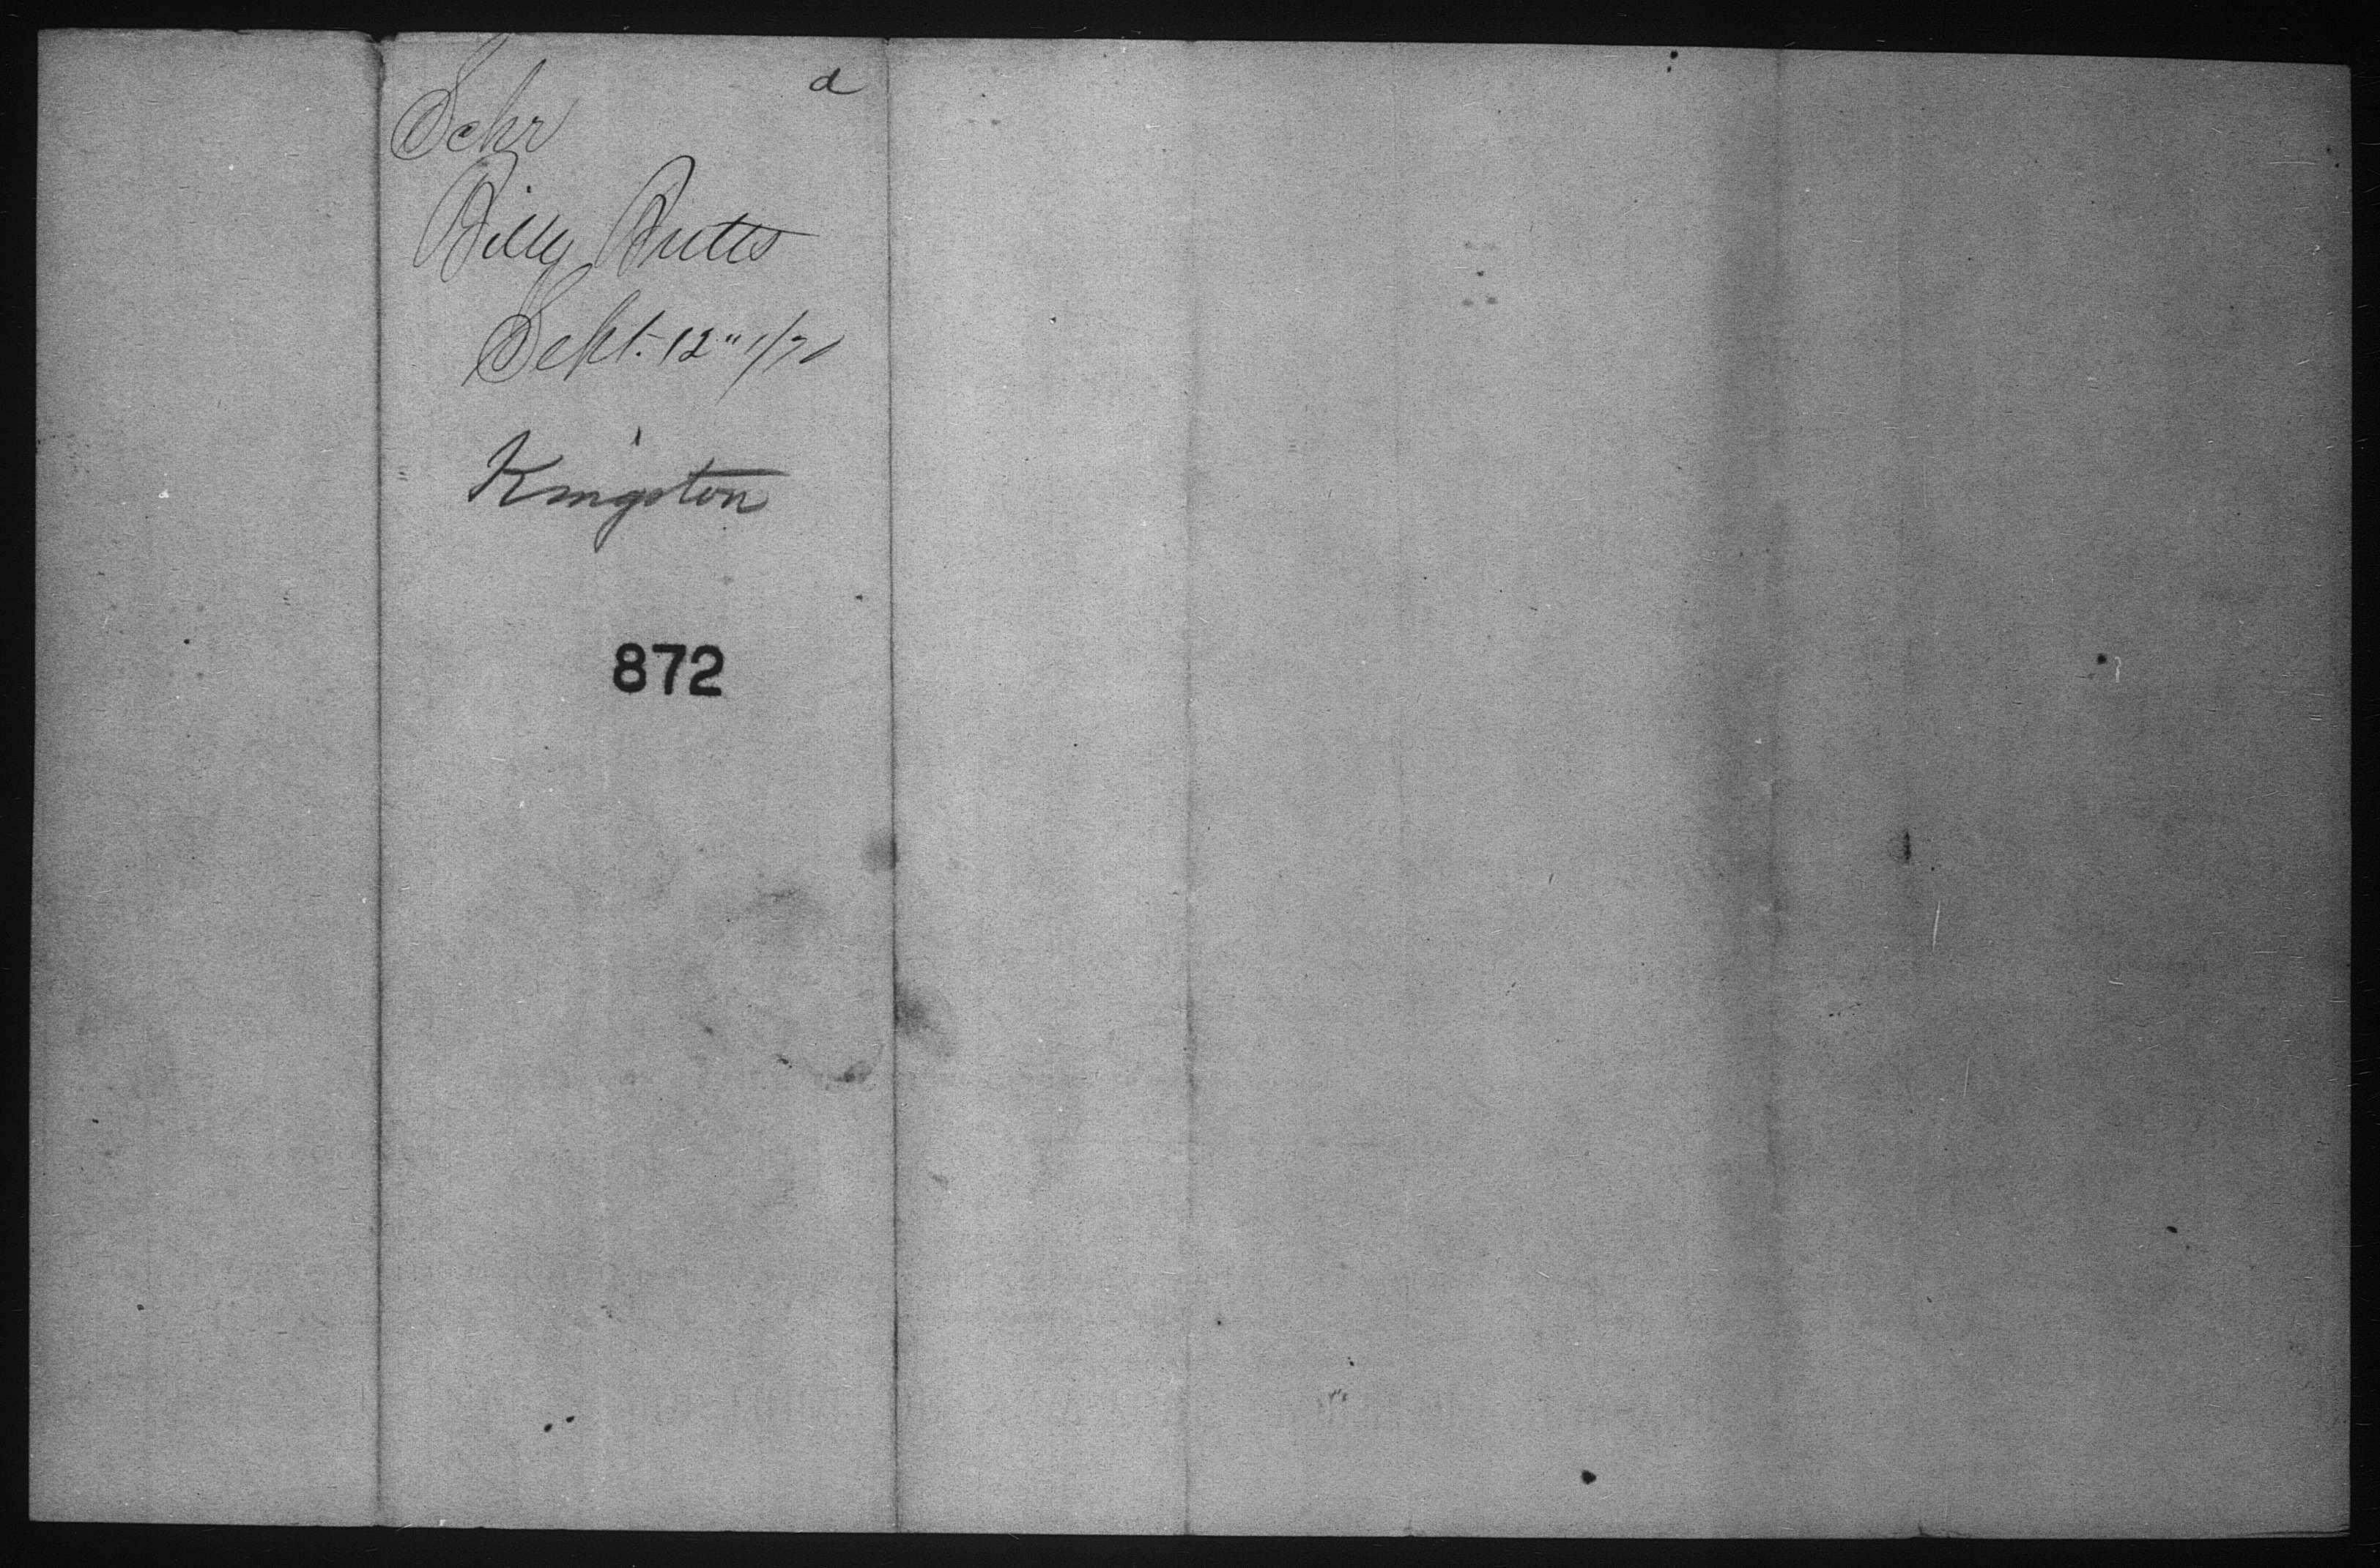 d
Schr
Billy Butts
Sept. 12" 1/71
Kingston
872